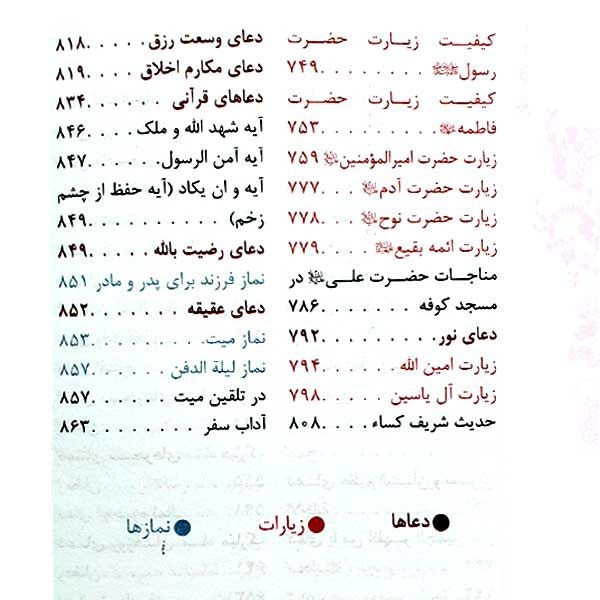 کیفیت زیارت حضرت
رسولﷺ . . . . . . . . . ۷۴۹
کیفیت زیارت حضرت
فاطمه . . . . . . . . . . ۷۵۳
زیارت حضرت امیرالمؤمنین ۷۵۹
زیارت حضرت آدم . . . ۷۷۷
زیارت حضرت نوح . . . ۷۷۸
زیارت ائمه بقیع . . . . ۷۷۹
مناجات حضرت علی در
مسجد کوفه . . . . . . . ۷۸۶
دعای نور . . . . . . . . . ۷۹۲
زیارت امین الله . . . . . ۷۹۴
زیارت آل یاسین . . . . ۷۹۸
حدیث شریف کساء . . . . ۸۰۸
دعای وسعت رزق . . . . . ۸۱۸
دعای مکارم اخلاق . . . . ۸۱۹
دعاهای قرآنی . . . . . . ۸۳۴
آیه شهد الله و ملک . . . ۸۴۶
آیه آمن الرسول . . . . . ۸۴۷
آیه و ان یکاد (آیه حفظ از چشم
زخم) . . . . . . . . . . ۸۴۹
دعای رضیت بالله . . . . ۸۴۹
نماز فرزند برای پدر و مادر ۸۵۱
دعای عقیقه . . . . . . . ۸۵۲
نماز میت . . . . . . . . ۸۵۳
نماز لیلة الدفن . . . . . ۸۵۷
در تلقین میت . . . . . . ۸۵۷
آداب سفر . . . . . . . . ۸۶۳
دعاها
زیارات
نمازها